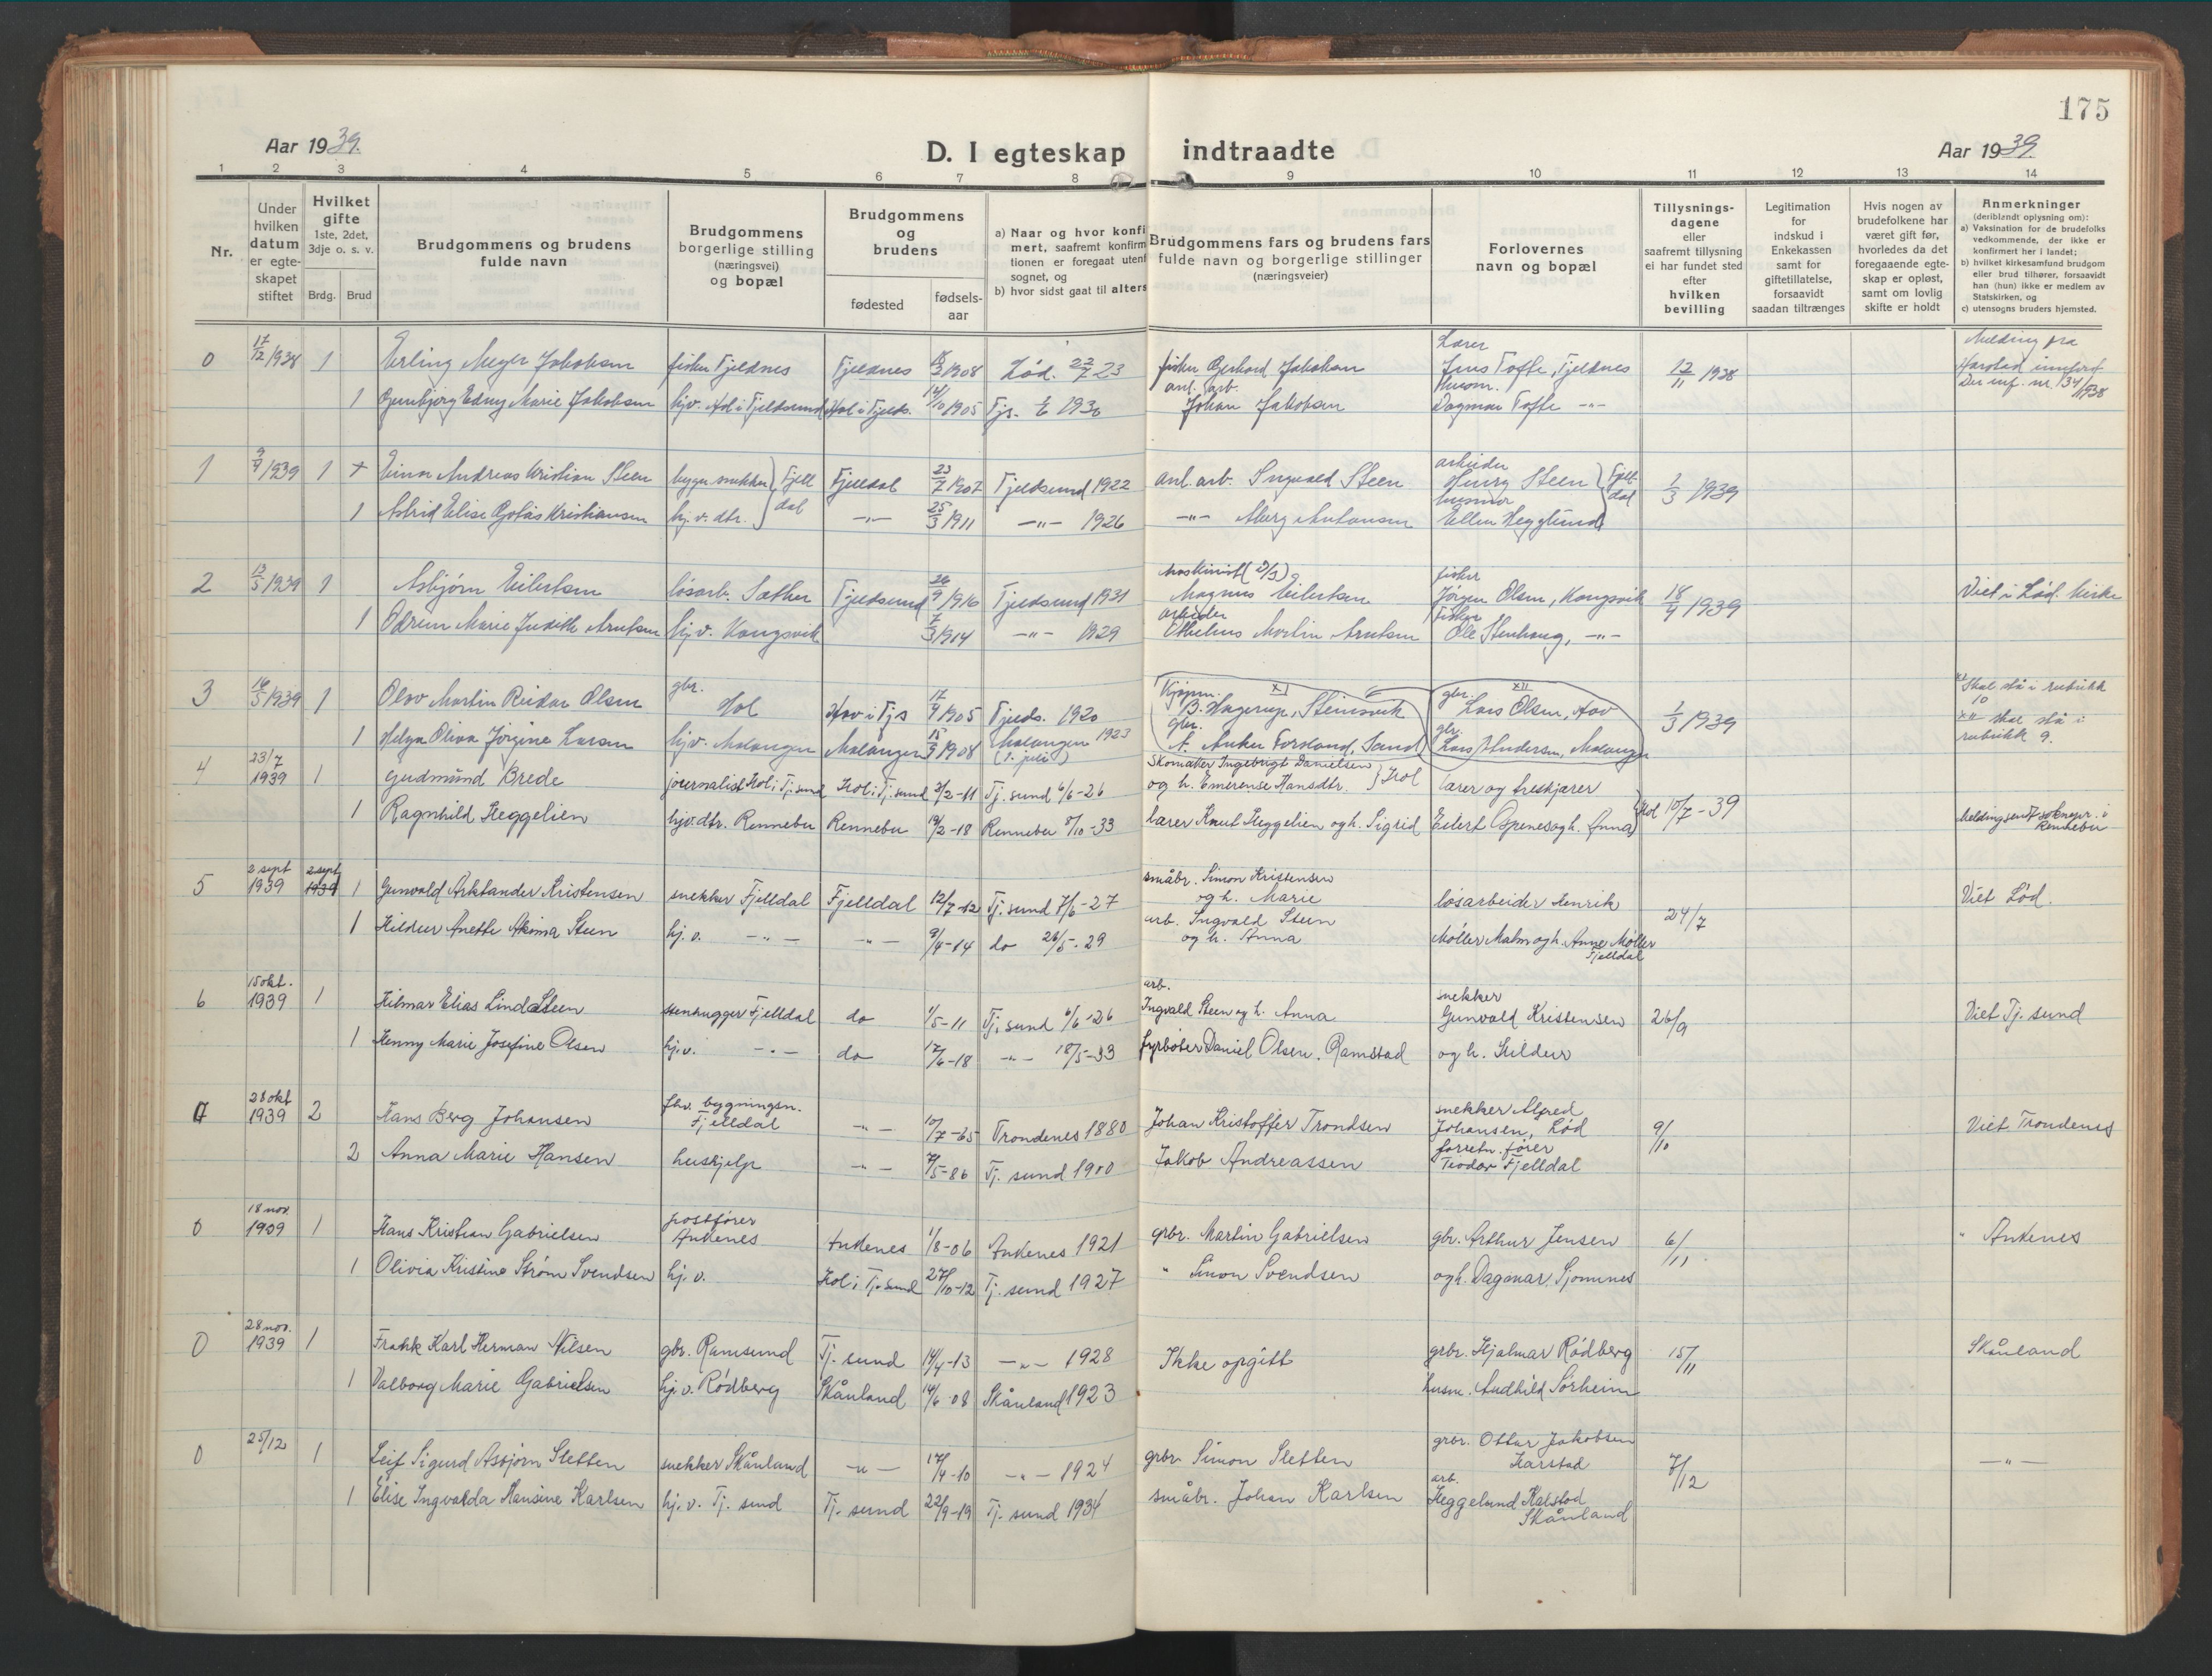 175
Aar 1939.
D. I egteskap indtraadte
Aar 1939.
1 2 3 4 5 6 7 8 9 10 11 12 13 14
Nr.
Under hvilken datum er egte- skapet stiftet
Hvilket gifte 1ste, 2det, 3dje o. s. v.
Brdg. Brud
Brudgommens og brudens fulde navn
Brudgommens borgerlige stilling (næringsvei) og bopæl
Brudgommens og brudens
fødested
fødsels- aar
a) Naar og hvor konfi
mert, saafremt konfirm
tionen er foregaat utenf
sognet, og
b) hvor sidst gaat til alters
Brudgommens fars og brudens fars fulde navn og borgerlige stillinger (næringsveier)
Forlovernes navn og bopæl
Tillysnings- dagene eller saafremt tillysning ei har fundet sted efter hvilken bevilling
Legitimation for indskud i Enkekassen samt for giftetillatelse, forsaavidt saadan tiltrænges
Hvis nogen av brudefolkene har været gift før, hvorledes da det foregaaende egte- skap er opløst, samt om lovlig skifte er holdt
Anmerkninger
(deriblandt oplysning om):
a) Vaksination for de brudefolks vedkommende, der ikke er konfirmert her i landet;
b) hvilket kirkesamfund brudgom eller brud tilhører, forsaavidt han (hun) ikke er medlem av Statskirken, og
c) utensogns bruders hjemsted.
0 17/12 1938 1 Erling Meyer Jakobsen fisker Fjeldnes Fjeldnes 1908 Lød. 22/7 23 fisker Gerhard Jakobsen Lærer Jens Toffe, Fjeldnes 12/11 1938 Melding fra Harstad
1 Gunbjørg Edny Marie Jakobsen hjv. Hol i Fjeldsund Hol i Fjelds. 14/10 1905 Fjs. 1930 anl. arb. Johan Jakobsen Husm. Dagmar Toffe -"- nr. 134/1938
1 9/4 1939 1 + Einar Andreas Kristian Steen bygn. snekker Fjelldal Fjelldal 23/7 1907 Fjeldsund 1922 anl. arb. Ingvald Steen arbeider Henry Steen Fjelldal 1/3 1939
1 Astrid Elise Kristiansen hj. v. dtr. -"- 25/3 1911 -"- 1926 -"- Antonsen husmor Ellen Hegglund
2 13/5 1939 1 Asbjørn Eilertsen løsarb. Sæther Fjeldsund 26/9 1916 Fjeldsund 1931 Maskinist Magnus Eilertsen fisker Jørgen Olsen, Kongsvik 18/4 1939 Viet i Lød. kirke
1 Odrun Marie Judith Arntsen hj. v. Kongsvik 7/3 1914 -"- 1929 arbeider Martin Arntsen Fisker Ole Stenhaug, -"-
3 16/5 1939 1 Olav Martin Reidar Olsen gbr. Hol Hov i Fjs 17/4 1905 Fjelds. 1920 Kjøpm. XI B. Hagerup, Steinsvik gbr. XII Lars Olsen, Hov 1/3 1939 XI Skal stå i rubrikk 10
1 Helga Oliva Jørgine Larsen hjv. Malangen Malangen 15/3 1908 Malangen 1923 (1. juli) gbr. A. Anker Forsland, Sand gbr. Lars Andersen, Malangen XII skal stå i rubrikk 9.
4 23/7 1939 1 Gudmund Brede journalist Hol i Tj. sund Hol i Tj. sund 3/2-11 Tj. sund 6/6-26 Skomaker Ingebrigt Danielsen og h. Emerense Hansdtr. Hol lærer og treskjærer
1 Ragnhild Heggelien hjv. dtr. Rennebu Rennebu 19/2-18 Rennebu 8/10-33 lærer Knut Heggelien og h. Sigrid Eilert Openes og h. Anna Hol 10/7-39 Melding sendt sokнepr. i Rennebu
5 2 sept 1939 2 sept 1939 1 Gunvald Arktander Kristensen snekker Fjelldal Fjelldal 12/7-12 Tj. sund 7/6-27 småbr. Simon Kristensen og h. Marie løsarbeider Henrik 24/7 Viet Lød.
1 Hildur Anette Steen hj. v. -"- -"- 9/4-14 do 26/5-29 arb. Ingvald Steen og h. Anna Møller Malm og h. Anne Møller Fjelldal
6 15 okt. 1939 1 Hilmar Elias Linda Steen stenhugger Fjelldal do 1/5-11 Tj. sund 6/6-26 arb. Ingvald Steen og h. Anna snekker Gunvald Kristensen 26/9 Viet Tj. sund
1 Henny Marie Josefine Olsen hj. v. -"- do 12/6-18 -"- 18/5-33 fyrbøter Daniel Olsen. Ramstad og h. Hildur
28 okt 1939 2 Hans Berg Johansen fhv. bygningsn. Fjelldal -"- 10/7-65 Trondenes 1880 Johan Kristoffer Trondsen snekker Alfred Johansen, Lød 9/10 Viet Trondenes
2 Anna Marie Hansen hushjelp -"- 7/5-86 Tj. sund 1900 Jakob Andreassen forretn. fører Teodor Fjelldal
0 18 nov 1939 1 Hans Kristian Gabrielsen postfører Ankenes Ankenes 1/8-06 Ankenes 1921 gbr. Martin Gabrielsen gbr. Arthur Jensen 6/11 " Ankenes
1 Olivia Kristine Strøm Svendsen hj. v. Hol i Tj. sund 27/10-12 Tj. sund 1927 " Simon Svendsen og h. Dagmar, Sjomnes
0 28 nov. 1939 1 Frank Karl Herman Nilsen gbr. Ramsund Tj. sund 14/4-13 -"- 1928 Ikke opgitt gbr. Hjalmar Rødberg 15/11 Skånland
1 Valborg Marie Gabrielsen hj. v. Rødberg Skånland 14/6-08 Skånland 1923 husm. Audhild Sørheim
0 25/12 1 Leif Sigurd Asbjørn Sletten snekker Skånland -"- 17/4-10 -"- 1924 gbr. Simon Sletten gbr. Ottar Jakobsen Harstad 7/12 -"-
1 Elise Ingvalda Hansine Karlsen hj. v. Tj. sund Tj. sund 22/9-19 Tj. sund 1934 småbr. Johan Karlsen arb. Heggelund Kalstad Skånland